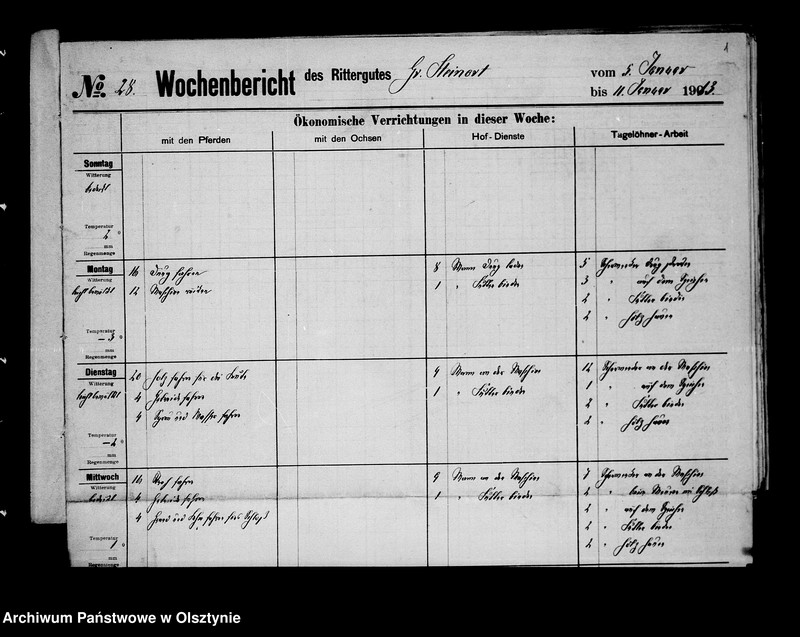 1
No. 28. Wochenbericht des Rittergutes Gr. Steinort
vom 5. Januar
bis 11. Januar 1913
Ökonomische Verrichtungen in dieser Woche:
mit den Pferden
mit den Ochsen
Hof-Dienste
Tagelöhner-Arbeit
Sonntag
Witterung
bedeckt
Temperatur
2 °
mm
Regenmenge
Montag
Witterung
Temperatur
-3 °
mm
Regenmenge
16 Dung fahren
12 Maschine
8 Mann Dung laden
1 " Futter
5 Scharwerker Dung
3 " auf dem Speicher
2 " Futter
2 " Holz hauen
Dienstag
Witterung
Temperatur
-2 °
mm
Regenmenge
20 Holz fahren für die Leute
4 Getreide fahren
4 Spreu und Wasser fahren
9 Mann an der Maschine
1 " Futter
12 Scharwerker an der Maschine
1 " auf dem Speicher
2 " Futter
2 " Holz hauen
Mittwoch
Witterung
bedeckt
Temperatur
1 °
mm
Regenmenge
16 fahren
4 Getreide fahren
4 und fahren
9 Mann an der Maschine
1 " Futter
7 Scharwerker an der Maschine
2 " beim
2 " auf dem Speicher
2 " Futter
2 " Holz hauen
Archiwum Państwowe w Olsztynie